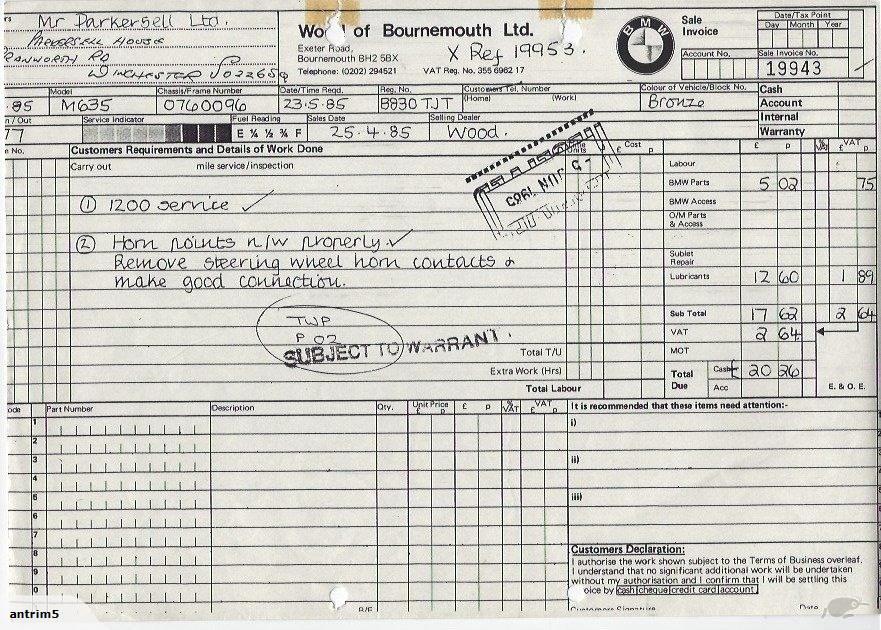 Mr Parkersell Ltd.
Parkersell House
Winchester
Wood of Bournemouth Ltd.
Exeter Road,
Bournemouth BH2 5BX
Telephone: (0202) 294521 VAT Reg. No. 355 6962 17
X Ref 19953.
BMW
Sale
Invoice
Date/Tax Point
Day Month Year
Account No.
Sale Invoice No.
19943
Model
Chassis/Frame Number
Date/Time Reqd.
Reg. No.
Customers Tel. Number
(Home) (Work)
Colour of Vehicle/Block No.
.85 M635 0760096 23.5.85 B930 TJT Bronze
Cash
Account
Internal
Warranty
/Out
Service Indicator
Fuel Reading
E ¼ ½ ¾ F
Sales Date
25.4.85
Selling Dealer
Wood.
77
No.
Customers Requirements and Details of Work Done
Time
Units
Cost
£ p
£ p % VAT VAT £ p
Carry out mile service/inspection
① 1200 service ✓
② Horn points n/w properly ✓
Remove steering wheel horn contacts &
make good connection.
TWP
P 02
SUBJECT TO WARRANT.
Labour
BMW Parts 5 02 75
BMW Access
O/M Parts
& Access
Sublet
Repair
Lubricants 12 60 1 89
Sub Total 17 62 2 64
VAT 2 64
Total T/U
MOT
Extra Work (Hrs)
Total
Due
Cash 20 26
Acc
E. & O. E.
Total Labour
ode Part Number Description Qty. Unit Price £ p £ p % VAT VAT £ p
It is recommended that these items need attention:-
1
i)
2
3
ii)
4
5
iii)
6
7
8
9
0
Customers Declaration:
I authorise the work shown subject to the Terms of Business overleaf.
I understand that no significant additional work will be undertaken
without my authorisation and I confirm that I will be settling this
oice by cash cheque credit card account
B/F
Customers Signature Date
antrim5